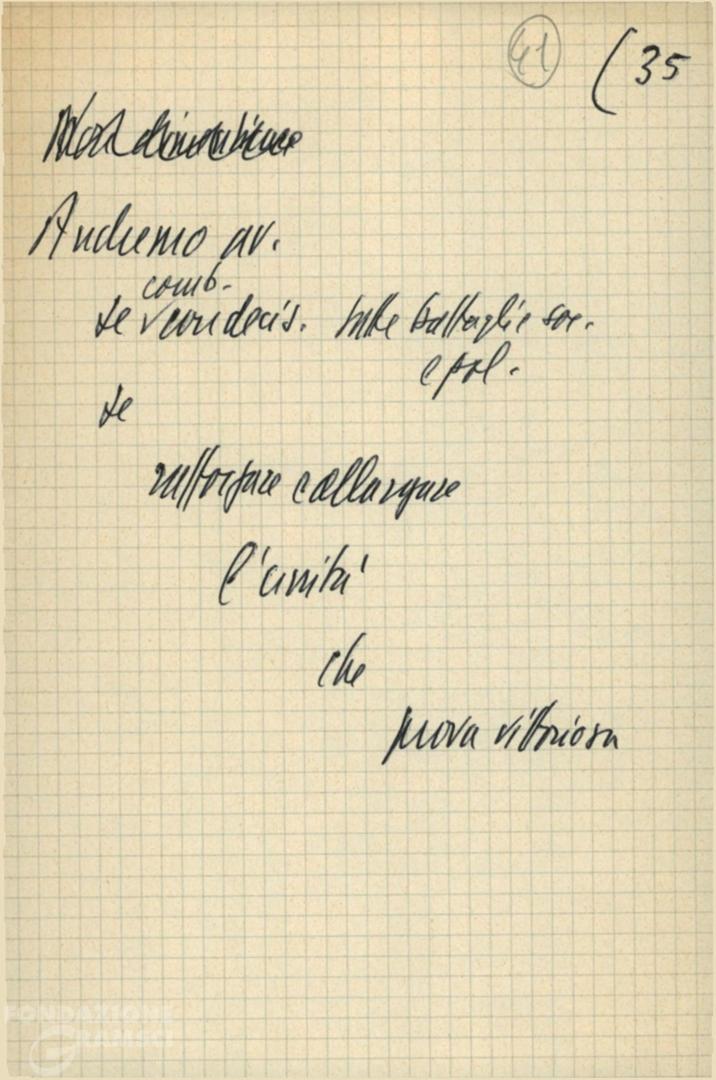 41 (35
Non dimenticare
Andremo av.
comb.
se con decis. tutte battaglie soc.
e pol.
se
rafforzare e allargare
l'unità
che
prova vittoriosa
FONDAZIONE
GRAMSCI